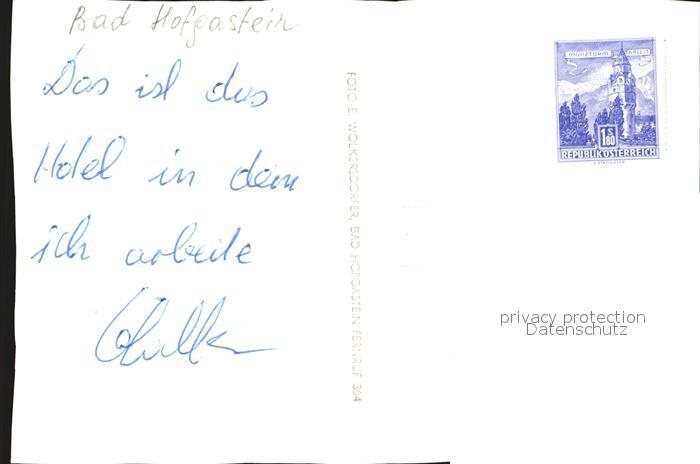 Bad Hofgastein
Das ist das
Hotel in dem
ich arbeite
FOTO E. WOLKERSDORFER, BAD HOFGASTEIN FERNRUF 364
MÜNZTURM HALL i. T.
1 S 80
REPUBLIK ÖSTERREICH
privacy protection
Datenschutz